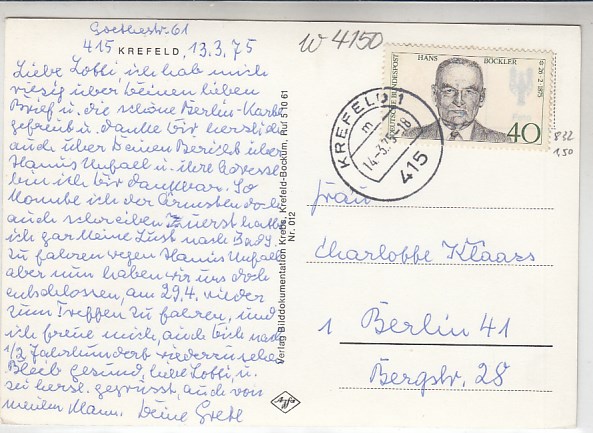 Goethestr. 61
415 KREFELD, 13.3.75
Liebe Lotti, ich hab mich
riesig über deinen lieben
Brief u. die schöne Berlin-Karte
gefreut u. danke dir herzlich
auch über Deinen Bericht über
Hanni's Unfall u. ihre Adresse
bin ich dir dankbar. So
konnte ich der Ärmsten doch
auch schreiben. Zuerst hatte
ich gar keine Lust nach Bad S.
zu fahren wegen Hannis Unfall
aber nun haben wir uns doch
entschlossen, am 29.4. wieder
zum Treffen zu fahren, und
ich freue mich, auch dich nach
1/2 Jahrhundert wiederzusehen
Bleib gesund, liebe Lotti, u.
sei herzl. gegrüsst, auch von
meinem Mann. Deine Grete
Verlag Bilddokumentation Krebs, Krefeld-Bockum, Ruf 5 10 61
Nr. 012
Agfa
W 4150
HANS BÖCKLER
DEUTSCHE BUNDESPOST
* 26·2·1875
40
KREFELD 1
m
14.-3.75-18
415
832
150
Frau
Charlotte Klaars
1 Berlin 41
Bergstr. 28